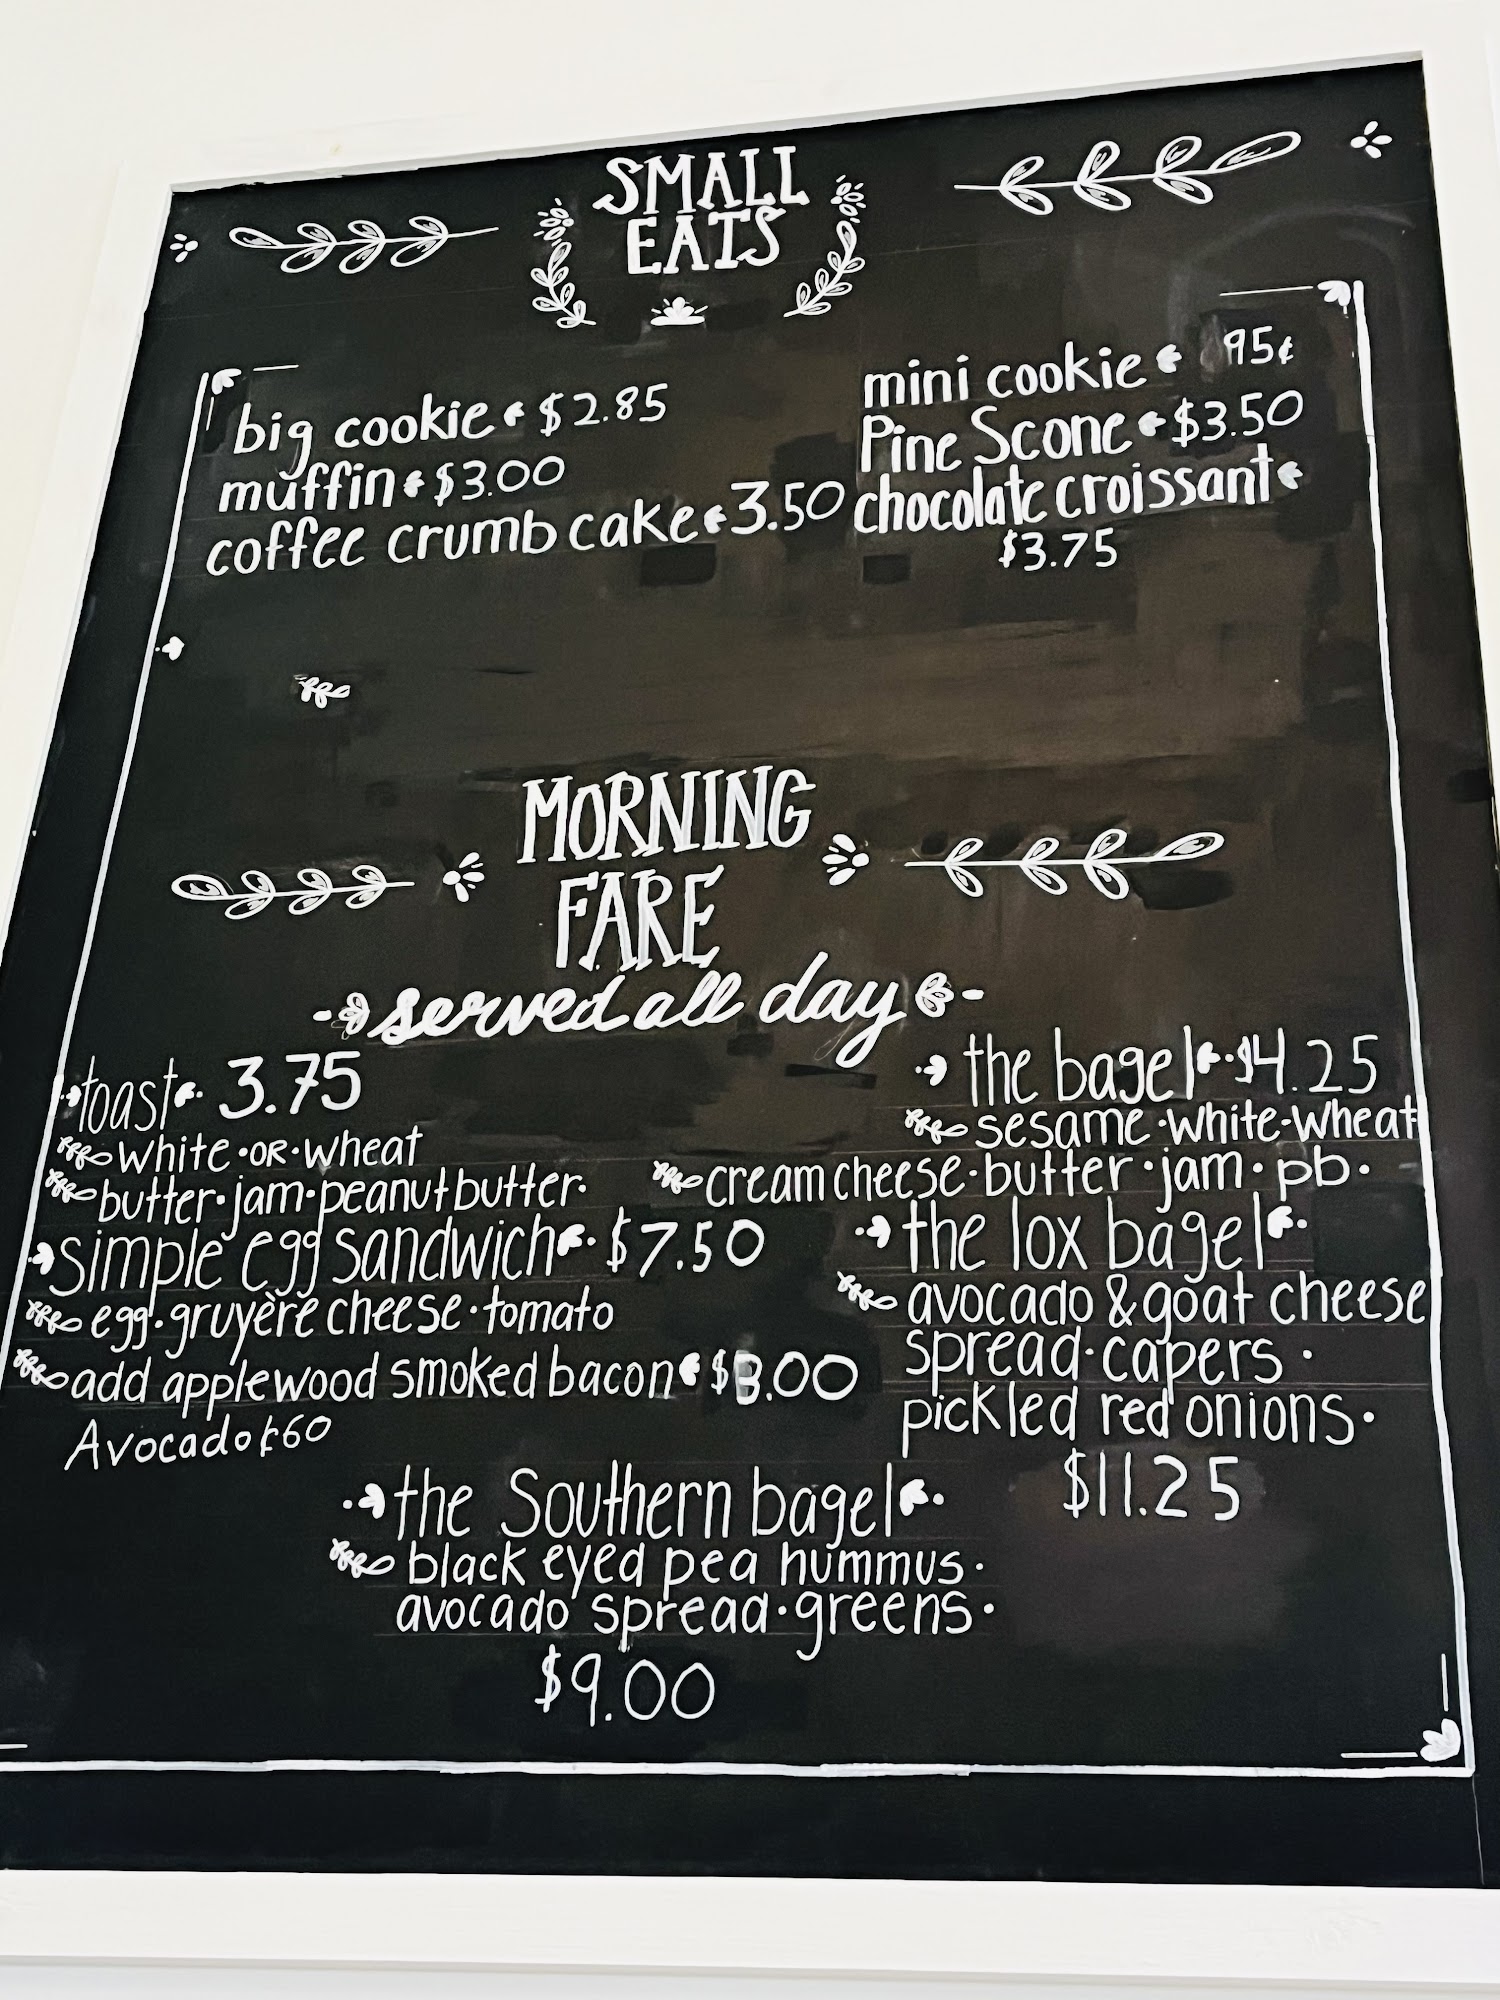 SMALL
EATS
big cookie $2.85
muffin $3.00
coffee crumb cake 3.50
mini cookie 95¢
Pine Scone $3.50
chocolate croissant
$3.75
MORNING
FARE
served all day
toast 3.75
white · OR · wheat
butter · jam · peanut butter ·
simple egg sandwich · $7.50
egg · gruyère cheese · tomato
add applewood smoked bacon $3.00
Avocado 60
the bagel · $4.25
sesame · white · wheat
cream cheese · butter · jam · pb ·
the lox bagel ·
avocado & goat cheese
spread · capers ·
pickled red onions ·
$11.25
the Southern bagel ·
black eyed pea hummus ·
avocado spread · greens ·
$9.00